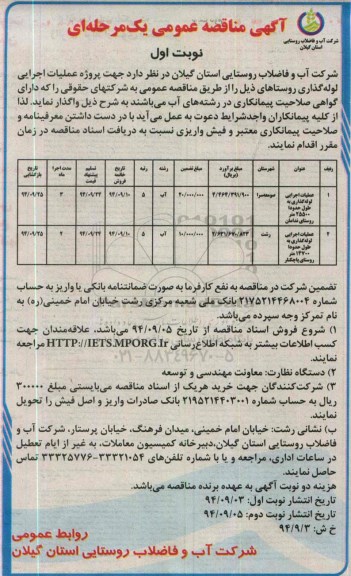 شرکت آب و فاضلاب روستایی
استان گیلان
آگهی مناقصه عمومی یک‌مرحله‌ای
نوبت اول
شرکت آب و فاضلاب روستایی استان گیلان در نظر دارد جهت پروژه عملیات اجرایی
لوله‌گذاری روستاهای ذیل را از طریق مناقصه عمومی به شرکتهای حقوقی را که دارای
گواهی صلاحیت پیمانکاری در رشته‌های آب می‌باشند به شرح ذیل واگذار نماید. لذا
از کلیه پیمانکاران واجدشرایط دعوت به عمل می‌آید با در دست داشتن معرفینامه و
صلاحیت پیمانکاری معتبر و فیش واریزی نسبت به دریافت اسناد مناقصه در زمان
مقرر اقدام نمایند.
ردیف عنوان شهرستان مبلغ برآورد (ریال) مبلغ تضمین رشته رتبه تاریخ خاتمه فروش تسلیم پیشنهاد قیمت مدت اجرا ماه تاریخ بازگشایی
۱ عملیات اجرایی لوله‌گذاری به طول حدودا ۲۵۵۰۰ متر روستای صومعسرا آب ۵ ۹۴/۰۹/۱۰ ۹۴/۰۹/۲۴ ۳ ۹۴/۰۹/۲۵
۲ عملیات اجرایی لوله‌گذاری به طول حدودا ۱۴۷۰۰ متر روستای رشت آب ۵ ۹۴/۰۹/۱۰ ۹۴/۰۹/۲۴ ۲ ۹۴/۰۹/۲۵
تضمین شرکت در مناقصه به نفع کارفرما به صورت ضمانتنامه بانکی یا واریز به حساب
شماره ۲۱۷۵۲۱۴۴۶۸۰۰۴ بانک ملی شعبه مرکزی رشت خیابان امام خمینی(ره) به
نام تمرکز وجه سپرده می‌باشد.
۱) شروع فروش اسناد مناقصه از تاریخ ۹۴/۰۹/۰۵ می‌باشد. علاقه‌مندان جهت
کسب اطلاعات بیشتر به شبکه اطلاع‌رسانی HTTP://IETS.MPORG.Ir مراجعه
نمایند.
۲) دستگاه نظارت: معاونت مهندسی و توسعه
۳) شرکت‌کنندگان جهت خرید هریک از اسناد مناقصه می‌بایستی مبلغ ۳۰۰۰۰۰
ریال به حساب شماره ۲۱۹۵۲۱۴۴۰۳۰۰۱ بانک صادرات واریز و اصل فیش را تحویل
نمایند.
ب) نشانی رشت: خیابان امام خمینی، میدان فرهنگ، خیابان پرستار، شرکت آب و
فاضلاب روستایی استان گیلان،دبیرخانه کمیسیون معاملات، به غیر از ایام تعطیل
در ساعات اداری، مراجعه و یا با شماره تلفن‌های ۳۳۳۲۱۰۵۴-۳۳۳۲۵۷۷۶ تماس
حاصل نمایند.
هزینه دو نوبت آگهی به عهده برنده مناقصه می‌باشد.
تاریخ انتشار نوبت اول: ۹۴/۰۹/۰۳
تاریخ انتشار نوبت دوم: ۹۴/۰۹/۰۵
خ ش: ۹۴/۹/۳
روابط عمومی
شرکت آب و فاضلاب روستایی استان گیلان